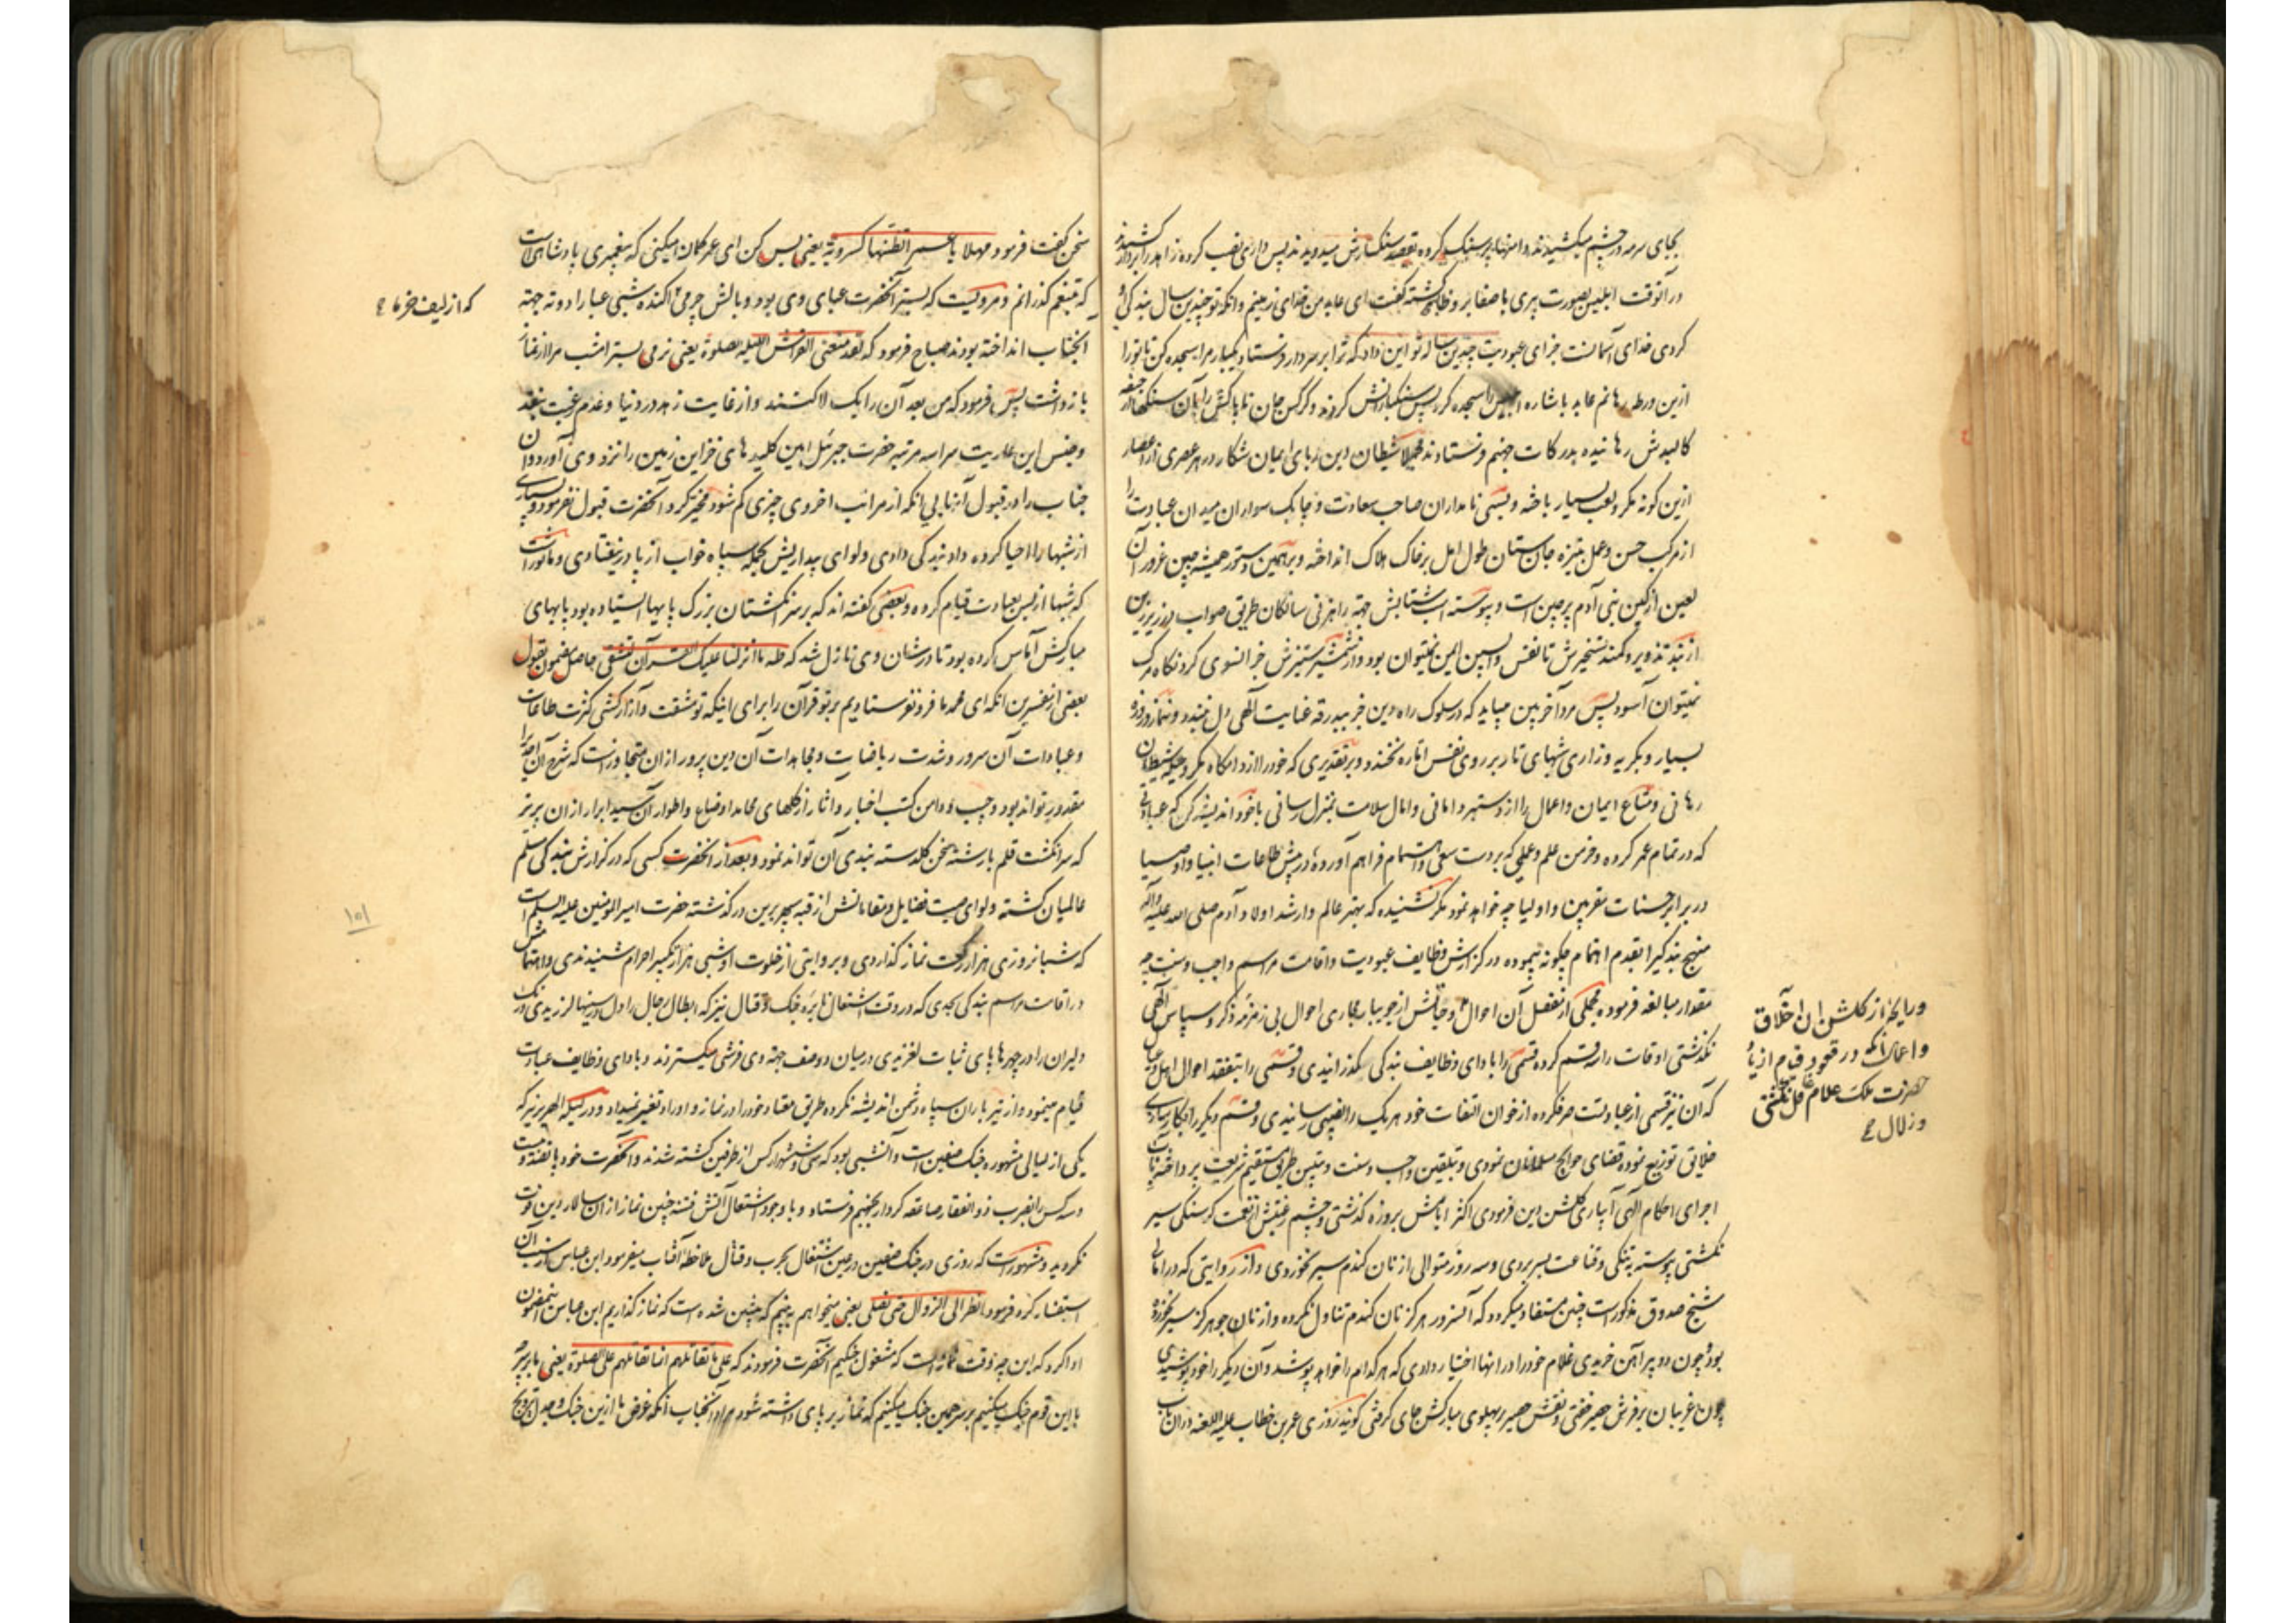 بجای سرمه در چشم میکشیدند دامنها پر سنک کرده بقصد سنکسارش میدویدند پس داری نصب کرده زاهد را بردار کشیدند
در آنوقت ابلیس بصورت پیری با صفا بر وی ظاهر کشته گفت ای عابد من خدای زمینم و آنکه تو چندین سال بندگی او
کردی خدای آسمانست جزای عبودیت چندین ساله تو این داد که ترا بر سر دار فرستاد یکبار مرا سجده کن تا تو را
ازین ورطه رهانم عابد باشاره ابلیس را سجده کرد پس سنکبارانش کردند و کرکس جان ناپاکش را بآن سنکها از جیفه
کالبدش رهانیده بدرکات جهنم فرستادند مجملا شیطان این زبای ایمان شکار در هر عصری از اعصار
ازین کونه مکر و لعب بسیار باخته و بسی نامداران صاحب سعادت و چابک سواران میدان عبادت را
از مرکب حسن و عمل بنیزه جان ستان طول امل بر خاک هلاک انداخته و بر همین دستور همیشه چین غرور آن
لعین از کین بنی آدم پر چین است و پیوسته اسب شتابش جهة راهزنی سالکان طریق صواب در زیر زین
از بند تزویر و کمند تسخیرش تا نفس واپسین ایمن نمیتوان بود و از شمشیر ستیزش جز آنسوی کردنکاه مرک
نمیتوان آسود پس مرد آخر بین میباید که در سلوک راه دین جز ببدرقه عنایت آلهی دل نبندد و بنماز و روزه
بسیار و بکریه و زاری شبهای تار بر روی نفس اماره نخندد و بر تقدیری که خود را از دامکاه مکر و حیله شیطان
رهانی و متاع ایمان و اعمال را از دستبرد امانی و امال سلامت بمنزل رسانی با خود اندیشه کن که عباداتی
که در تمام عمر کرده و خرمن علم و عملی که بر دست سعی و اهتمام فراهم آورده در پیش طاعات انبیا و اوصیا
در برابر حسنات مقربین و اولیا چه خواهد نمود مکر نشنیده که بهتر عالم و ارشد اولاد آدم صلی الله علیه و آله
منهج بندکی را بقدم اهتمام چکونه پیموده در کزارش وظایف عبودیت و اقامت مراسم واجب و سنت چه
مقدار مبالغه فرموده مجملی از مفصل آن احوال و جانش از جویبار مجاری احوال بی زمزمه ذکر و سپاس آلهی
نکذشتی اوقات را سه قسم کرده قسمی را با ادای وظایف بندکی کذرانیدی و قسمی را بتفقد احوال اهل و عیال
که آن نیز قسمی از عبادتست صرف کرده از خوان التفات خود هر یک را نصیبی رسانیدی و قسم دیکر را بکارسازی
خلائق توزیع نموده قضای حوائج مسلمانان نمودی و بتلقین واجب و سنت و تبیین طریق مستقیم شریعت پرداخته بآب
اجرای احکام آلهی آبیاری کلشن دین فرمودی اکثر ایامش بروزه کذشتی و چشم رغبتش از نعمت کرسنکی سیر
نکشتی پیوسته بتنکی و قناعت بسر بردی و سه روز متوالی از نان کندم سیر نخوردی و از روایتی که در امالی
شیخ صدوق مذکور است چنین مستفاد میکردد که آنسرور هرکز نان کندم تناول نکرده و از نان جو هرکز سیر نخورده
بود و چون دو پیراهن خریدی غلام خود را در آنها اختیار دادی که هر کدام را خواهد پوشد و آن دیکر را خود پوشیدی
چون غریبان بر فرش حصیر خفتی و نقش حصیر بر پهلوی مبارکش جای کرفتی کویند روزی عمر بن خطاب علیه اللعنه در آن باب
و رایحه از کلشن آن اخلاق
و اعمال آنکه در قعود و قیام از یاد
حضرت ملک علام
سخن گفت فرمود مهلا یا عمر اتظنها کسرویة یعنی بس کن ای عمر کمان میکنی که پیغمبری پادشاهی است
که بتنعم کذرانم و مرویست که بستر آنحضرت عبای وی بود و بالش چرمی آکنده شبی عبا را دو ته جهة
که از لیف خرما
آنجناب انداخته بودند صباح فرمود که لقد منعنی الفراش اللیله الصلوة یعنی نرمی بستر امشب مرا از نماز
باز داشت پس فرمود که من بعد آن را یک لا کنند و از غایت زهد در دنیا و عدم رغبت بنقد
و جنس این عاریت سرا سه مرتبه حضرت جبرئیل امین کلیدهای خزاین زمین را نزد وی آورد و آن
جناب را در قبول آنها بی آنکه از مراتب اخروی چیزی کم شود مخیر کرد آنحضرت قبول نفرمود و بسیاری
از شبها را احیا کرده داد بندکی دادی و لوای بیداریش بحمله سپاه خواب از پا در نیفتادی و ماثور است
که شبها از بس بعبادت قیام کرده و بعضی گفته اند که بر سر انکشتان بزرک پایها ایستاده بود پایهای
مبارکش آماس کرده بود تا در شان وی نازل شد که طه ما انزلنا علیک القرآن لتشقی حاصل مضمون بقول
بعضی از مفسرین آنکه ای محمد ما فرو نفرستادیم بر تو قرآن را برای اینکه تو مشقت و آزار کشی کثرت طاعات
و عبادات آن سرور و شدت ریاضات و مجاهدات آن دین پرور از آن متجاوز است که شرح آن احدی را
مقدور تواند بود و جیب و دامن کتب اخبار و آثار از کلهای محامد اوضاع و اطوار آن سید ابرار از آن پر تر
که سر انکشت قلم با رشته سخن کلدسته بندی آن تواند نمود و بعد از آنحضرت کسی که در کزارش بندکی مسلم
عالمیان کشته و لوای صیت فضایل و مقاماتش از قبه سپهر برین در کذشته حضرت امیر المؤمنین علیه السلام است
۱۰۱
که شبانروزی هزار رکعت نماز کذاردی و بروایتی از خلوت او شبی هزار تکبیر احرام شنیدندی و اهتمامش
در اقامت مراسم بندکی بحدی که در وقت اشتعال نایره جنک و قتال نیز که ابطال رجال را دل در سینها لرزیدی و رنک
دلیران را در چهرها پای ثبات لغزیدی در میان دو صف جهة وی فرشی میکستردند و بادای وظایف عبادت
قیام مینمود و از تیر باران سپاه دشمن اندیشه نکرده طریق معتاد خود را در نماز و اوراد تغییر نمیداد و در لیلة الهریر نیز که
یکی از لیالی مشهوره جنک صفین است و آنشبی بود که سی و شش هزار کس از طرفین کشته شدند و آنحضرت خود پانصد و بیست
و سه کس را بضرب ذو الفقار صاعقه کردار بجهنم فرستاد و با وجود اشتعال آتش فتنه چنین نماز از آن سالار دین فوت
نکردید و مشهور است که روزی در جنک صفین در عین اشتغال بحرب و قتال ملاحظه آفتاب میفرمود ابن عباس از سبب آن
استفسار کرد فرمود انظر الی الزوال حتی نصلی یعنی میخواهم ببینم که پیشین شده است که نماز کذاریم ابن عباس این مضمون
ادا کرد که این چه وقت نماز است که مشغول جنکیم آنحضرت فرمودند که علی ما نقاتلهم انما نقاتلهم علی الصلوة یعنی ما بر چه چیز
با این قوم جنک میکنیم بر سر همین جنک میکنیم که نماز بر پای داشته شود مراد آنجناب آنکه غرض ما ازین جنک و جدل ترویج